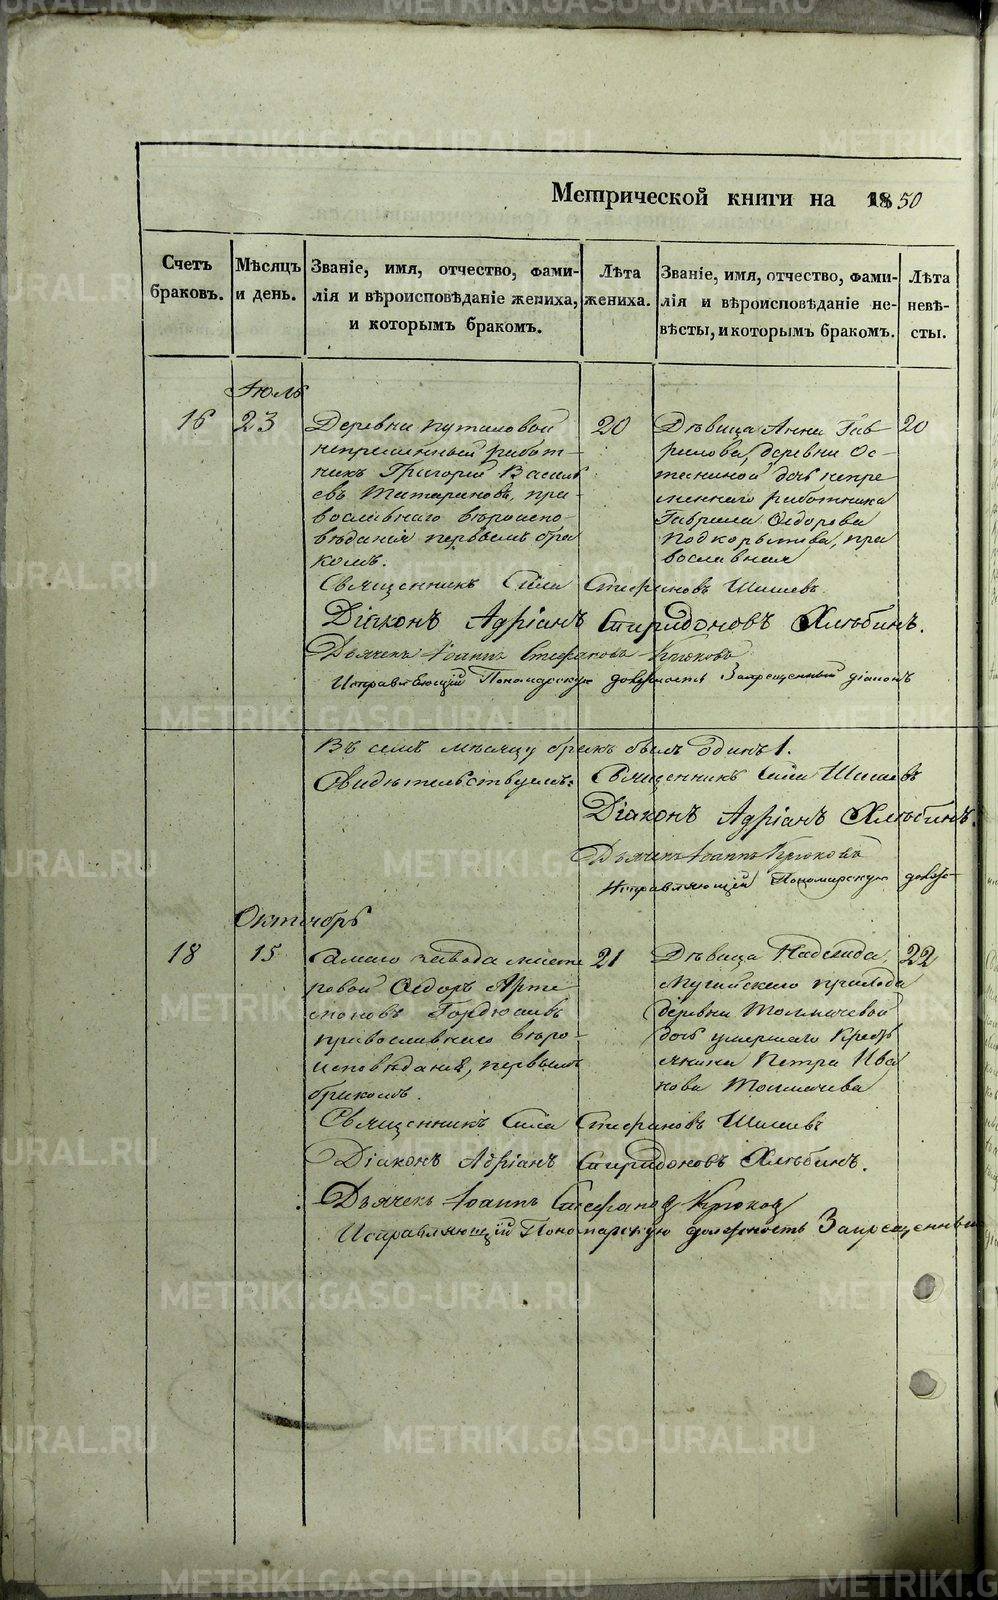 Метрической книги на 1850
Счетъ браковъ.
Мѣсяцъ и день.
Званіе, имя, отчество, фами-
лія и вѣроисповѣданіе жениха,
и которымъ бракомъ.
Лѣта жениха.
Званіе, имя, отчество, фами-
лія и вѣроисповѣданіе не-
вѣсты, и которымъ бракомъ.
Лѣта невѣ-
сты.
Іюль
16
23
Деревни Путиловой
непременный работ-
никъ Григорій Василь
евъ Татариновъ, пра-
вославнаго вѣроиспо-
вѣданія первымъ бра
комъ.
20
Дѣвица Анна Гав-
рилова, деревни Ос-
таниной дочь непре
меннаго работника
Гаврила Ѳедорова
Подкорытова, пра
вославная
20
Священникъ Сила Стефановъ Шишевъ
Діаконъ Адріанъ Спиридоновъ Хлѣбинъ.
Дьячекъ Іоаннъ Стефановъ Крюковъ
Исправляющій Пономарскую должность Запрещенный діаконъ
Въ семъ мѣсяцу бракъ былъ одинъ 1.
Свидѣтельствуемъ: Священникъ Сила Шишевъ
Діаконъ Адріанъ Хлѣбинъ.
Дьячекъ Іоаннъ Крюковъ
Исправляющій Пономарскую должо-
Октябрь
18
15
Самаго завода масте
ровой Ѳедоръ Арте
моновъ Гордѣевъ
православнаго вѣро-
исповѣданія, первымъ
бракомъ.
21
Дѣвица Надежда,
прихода
деревни Толмачевой
дочь умершаго Кресть
янина Петра Ива
нова Толмачева
22
Священникъ Сила Стефановъ Шишевъ
Діаконъ Адріанъ Спиридоновъ Хлѣбинъ.
Дьячекъ Іоаннъ Стефановъ Крюковъ
Исправляющій Пономарскую должность Запрещенный
METRIKI.GASO-URAL.RU